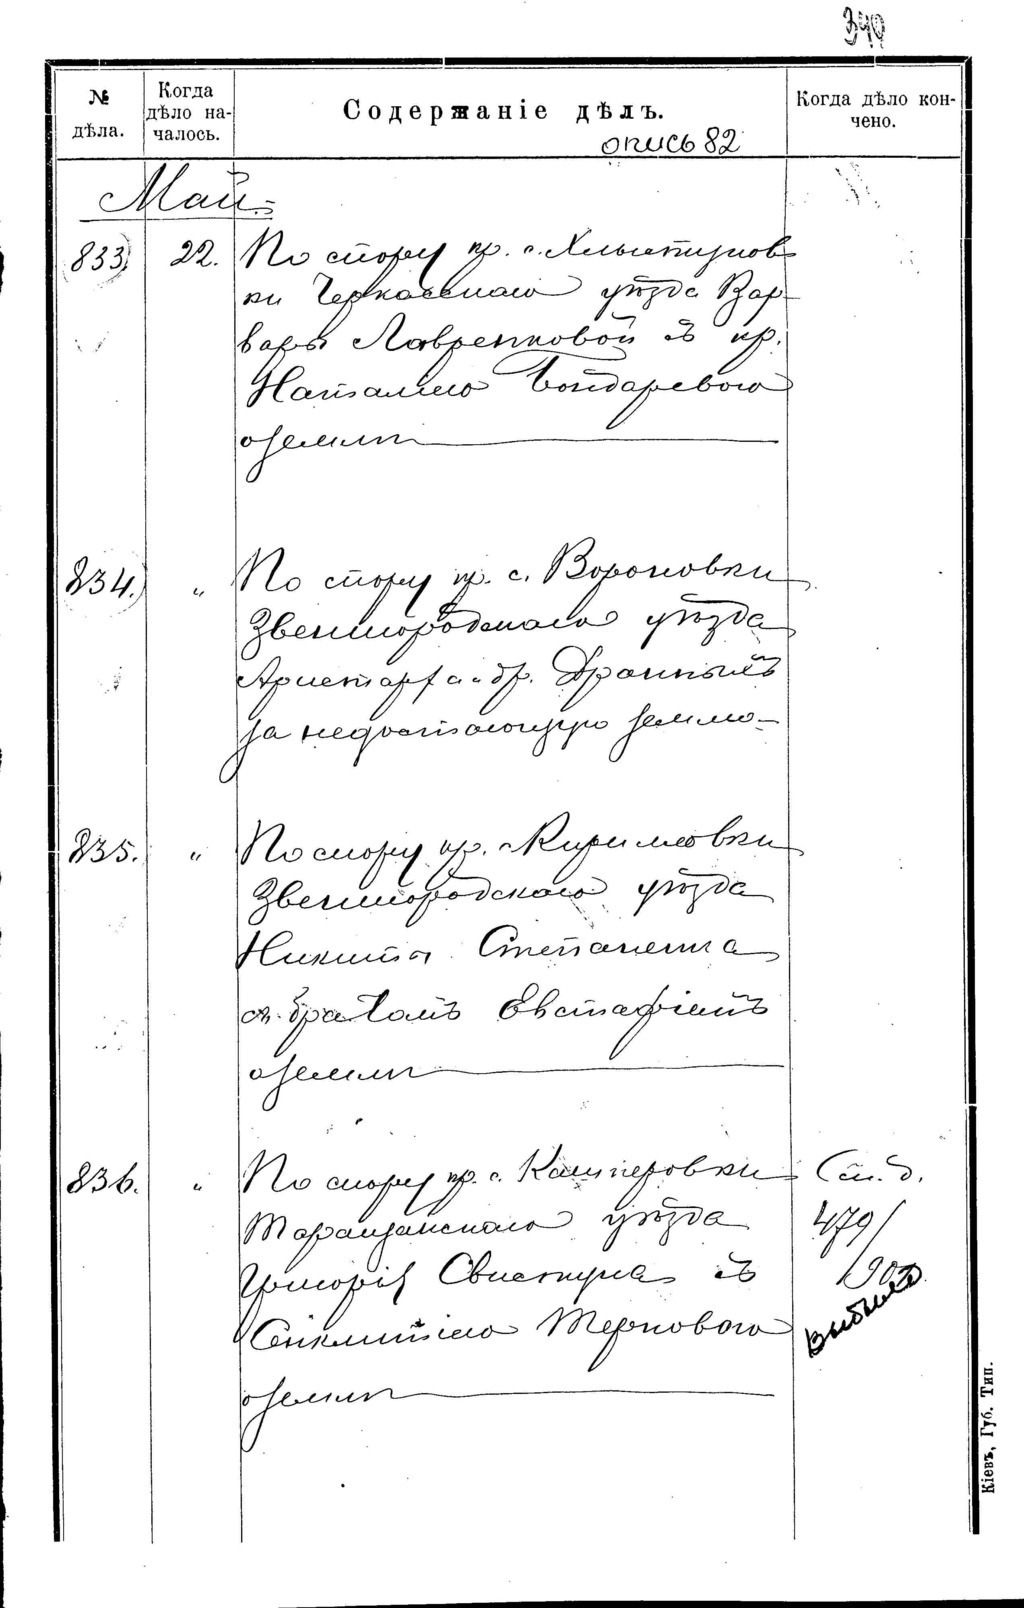 340
№ дѣла.
Когда дѣло на-
чалось.
Содержаніе дѣлъ.
Когда дѣло кон-
чено.
опись 82
Май
833) 22. По спору кр. с. Хлыстуновки
ки Черкасскаго уѣзда Вар-
вары Лавренковой съ кр.
Наталіею Бондаревою
о землѣ
834.) " По спору кр. с. Вороновки
Звенигородскаго уѣзда
Аристарха и др. Дранныхъ
за недостающую землю
835. " По спору кр. Кириловки
Звенигородскаго уѣзда
Никиты Степаненка
съ братомъ Евстафіемъ
о землѣ
836. " По спору кр. с. Кашперовки
Таращанскаго уѣзда
Григорія Свистуна съ
Синклитіею Терновою
о землѣ
Ст. д.
479/
902
выбыло
Кіевъ, Губ. Тип.